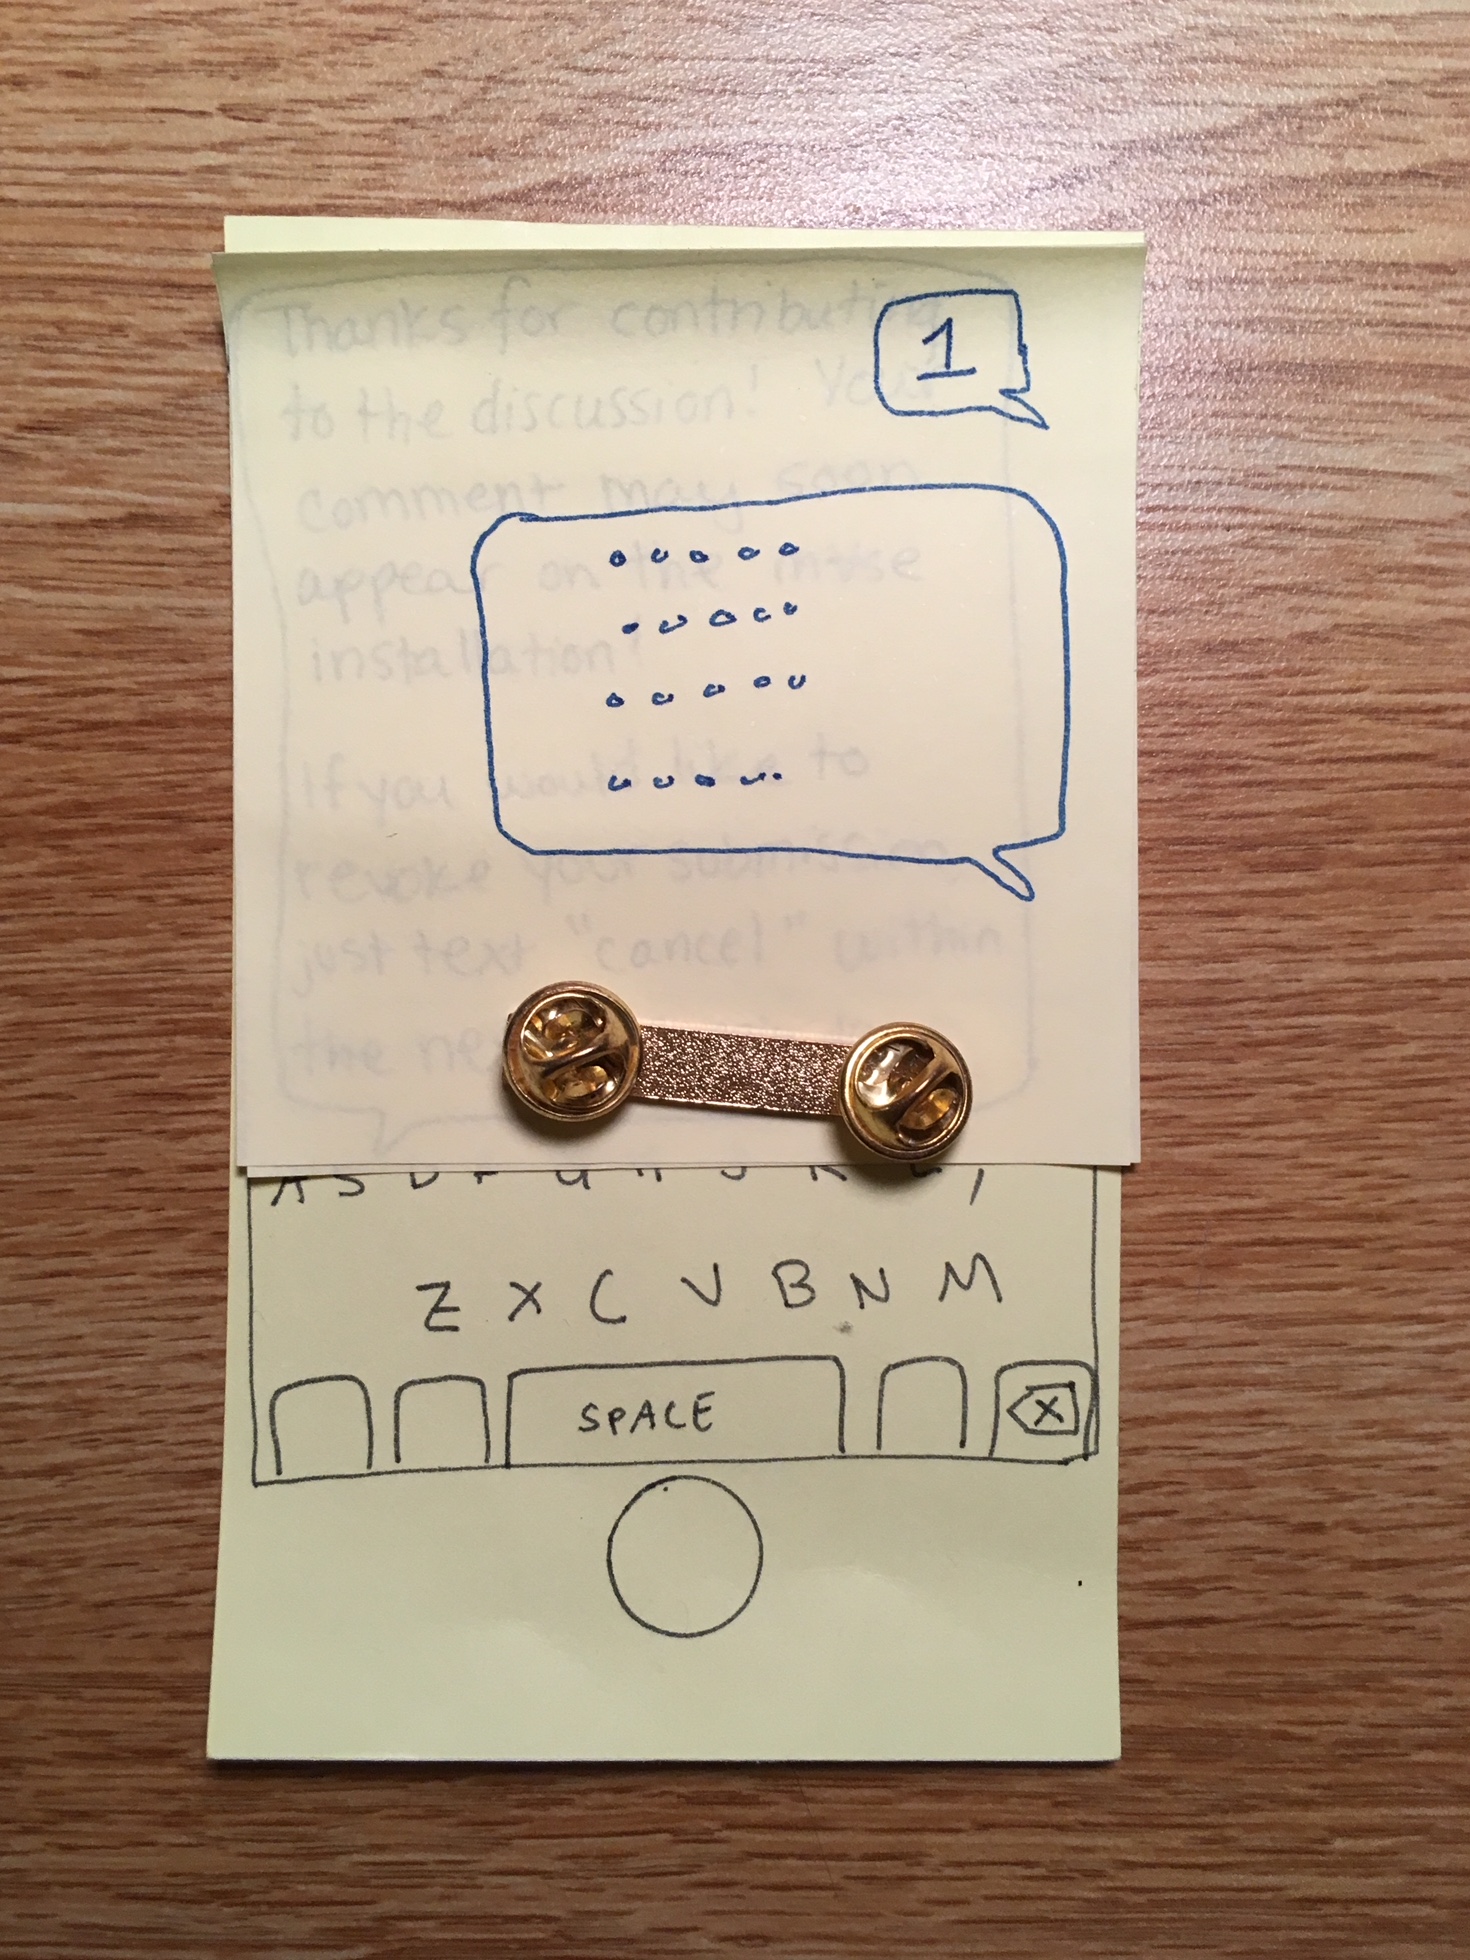 1
Thanks for contributing
to the discussion! Your
comment may soon
appear on the
installation!
If you would like to
revoke your submission,
just text "cancel" within
the
A S D F G H J K L
Z X C V B N M
SPACE
X